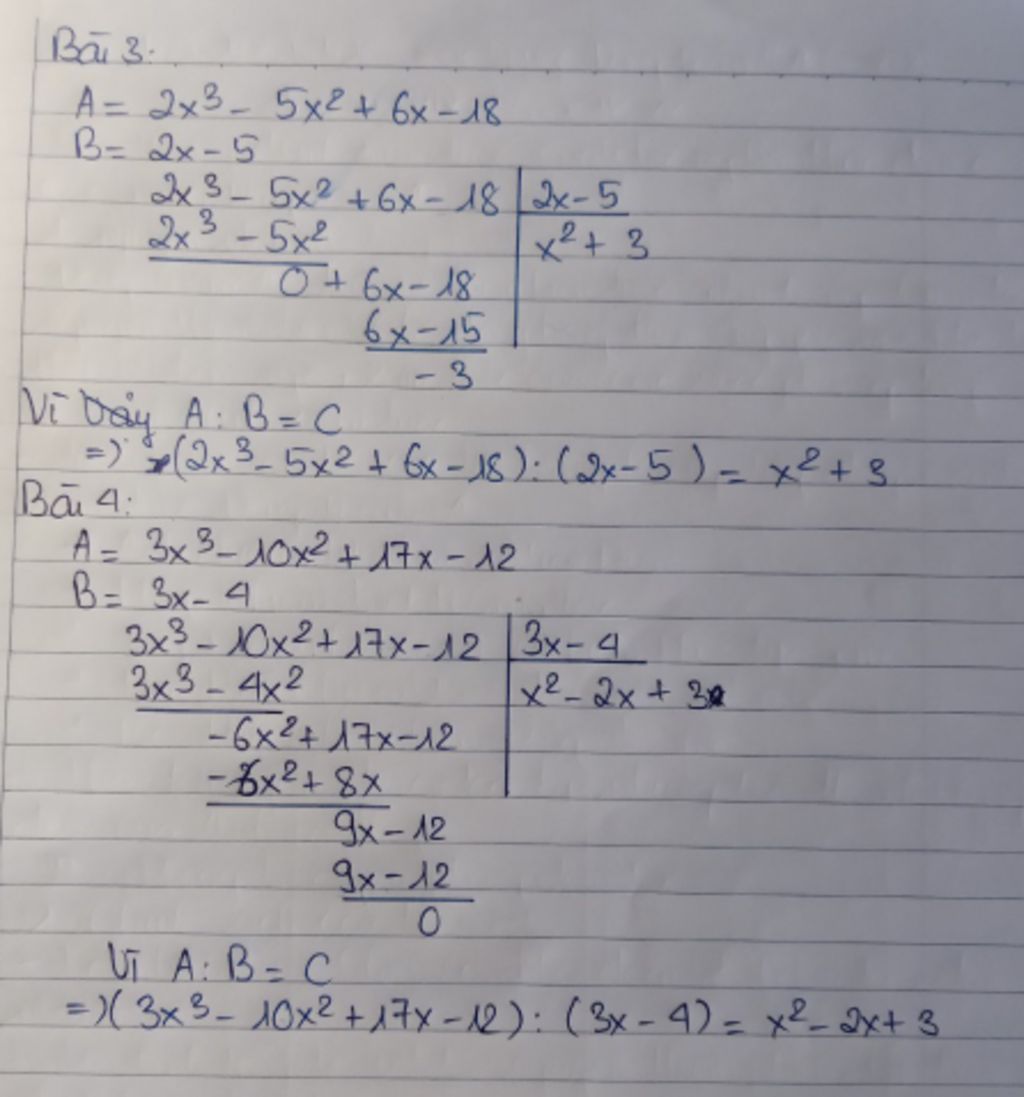 Bài 3:
A = 2x³ - 5x² + 6x - 18
B = 2x - 5
2x³ - 5x² + 6x - 18 | 2x - 5
2x³ - 5x² | x² + 3
0 + 6x - 18
6x - 15
- 3
Vì vậy A : B = C
=> (2x³ - 5x² + 6x - 18) : (2x - 5) = x² + 3
Bài 4:
A = 3x³ - 10x² + 17x - 12
B = 3x - 4
3x³ - 10x² + 17x - 12 | 3x - 4
3x³ - 4x² | x² - 2x + 3
-6x² + 17x - 12
-6x² + 8x
9x - 12
9x - 12
0
Vì A : B = C
=> (3x³ - 10x² + 17x - 12) : (3x - 4) = x² - 2x + 3